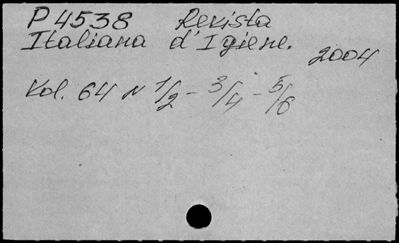 P 4538 Revista
Italiana d'Igiene.
2004
Vol. 64 N 1/2 - 3/4 - 5/6